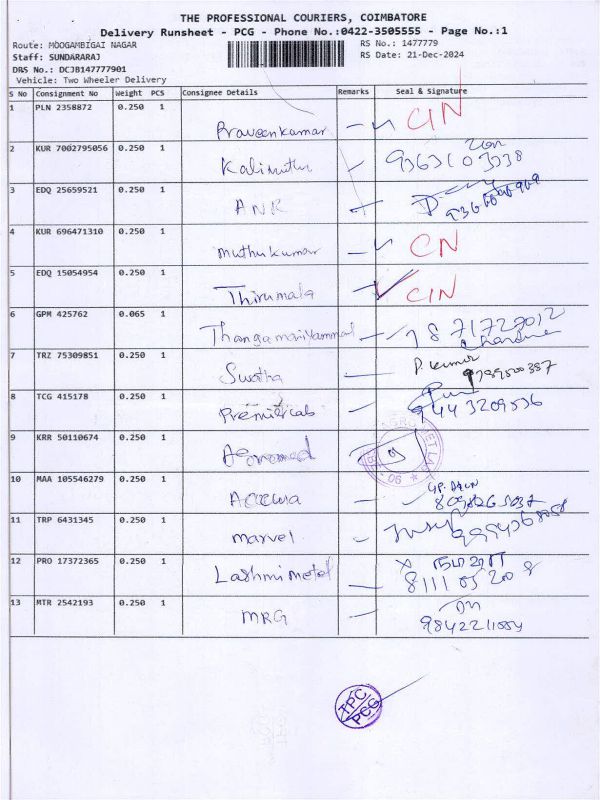 THE PROFESSIONAL COURIERS, COIMBATORE
Delivery Runsheet - PCG - Phone No.:0422-3505555 - Page No.:1
Route: MOOGAMBIGAI NAGAR
RS No.: 1477779
Staff: SUNDARARAJ
RS Date: 21-Dec-2024
DRS No.: DCJB147777901
Vehicle: Two Wheeler Delivery
S No Consignment No Weight PCS Consignee Details Remarks Seal & Signature
1 PLN 2358872 0.250 1 Praveenkumar CIN
2 KUR 7002795056 0.250 1 Kalimuthu
3 EDQ 25659521 0.250 1 ANR
4 KUR 696471310 0.250 1 muthukumar CN
5 EDQ 15054954 0.250 1 Thirumala CIN
6 GPM 425762 0.065 1 Thangamariyammal
7 TRZ 75309851 0.250 1 Swatha P. Kumar
8 TCG 415178 0.250 1 Premier Lab 9443209536
9 KRR 50110674 0.250 1
10 MAA 105546279 0.250 1
11 TRP 6431345 0.250 1 marvel
12 PRO 17372365 0.250 1 Lashmi metal
13 MTR 2542193 0.250 1 MRG
TPC
PCG